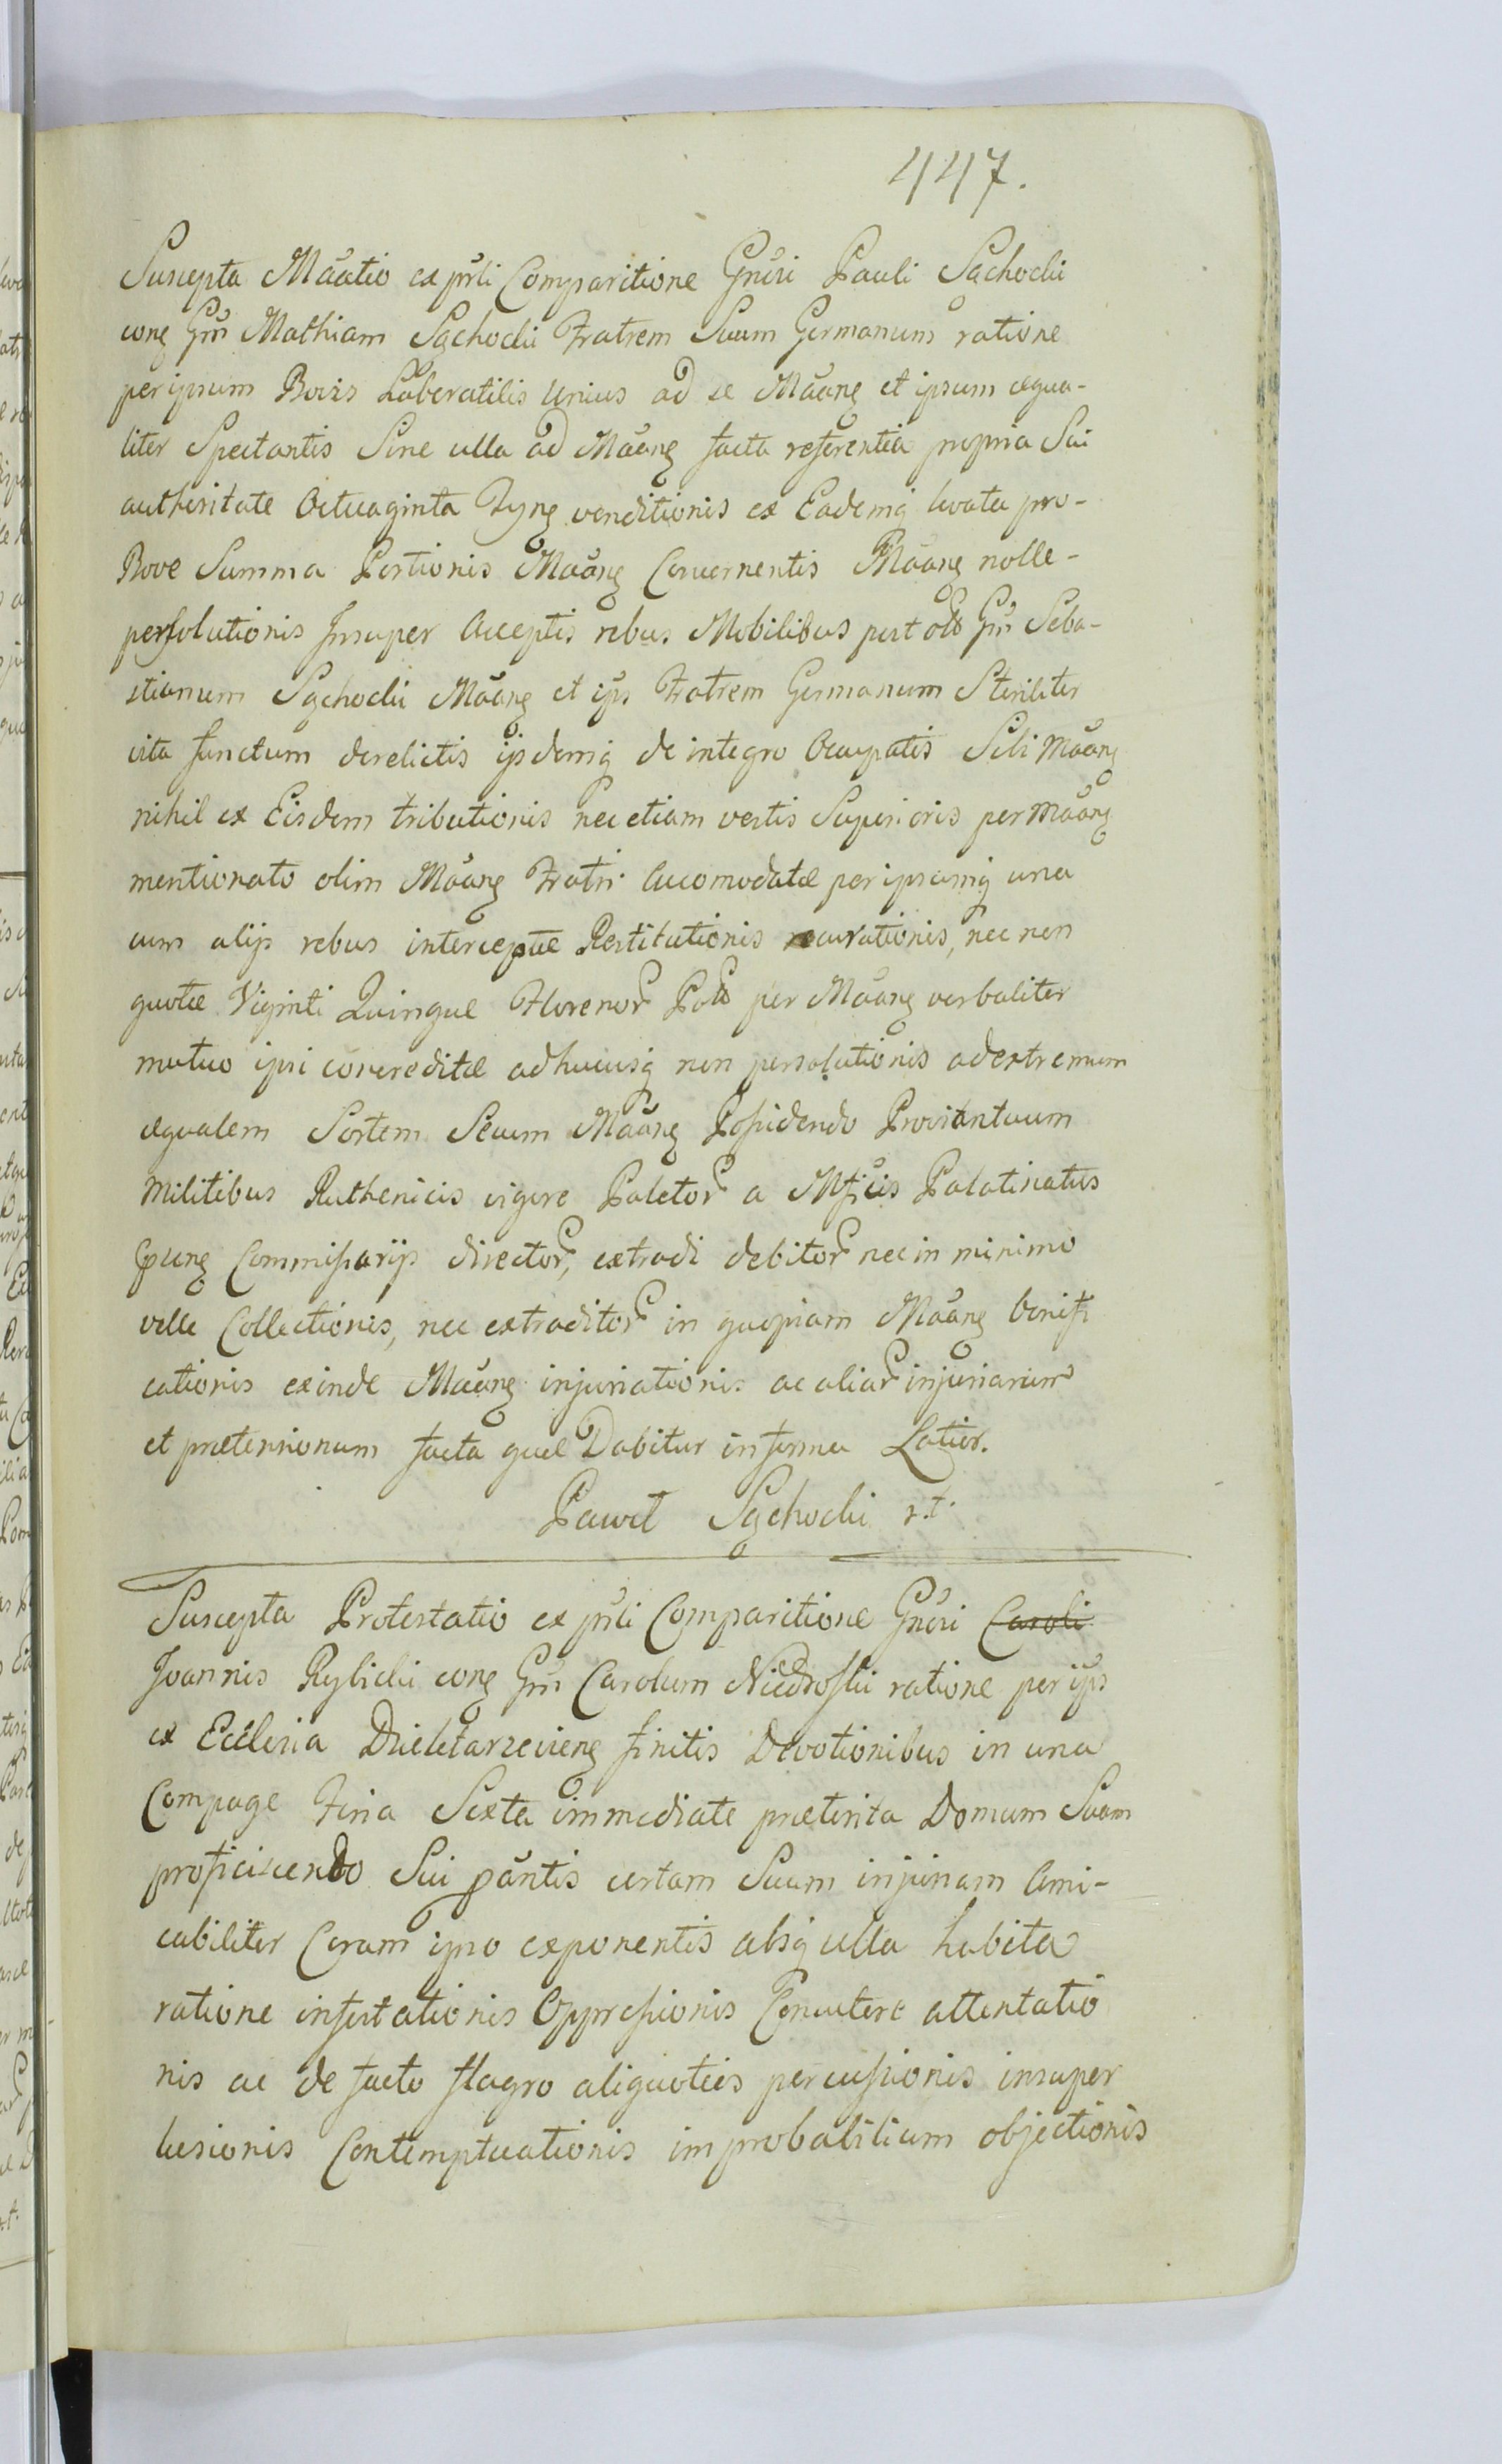 447.
Suscepta Mãatio ex prńli Comparitione Gnŭri Pauli Sąchocki
cong Gm̃ Mathiam Sąchocki Fratrem Suum Germanum ratione
per ipsum Bovis Laboratilis Unius ad se Mãang et ipsum æqua-
liter Spectantis Sine ulla ad Mãang facta referentia propria Sui
authoritate Octuaginta Tyng venditionis ex Eademq levata pro-
Bove Summa Portionis Mãang Concernentis Mãang nolle-
persolutionis Insuper Acceptis rebus Mobilibus post olb Gm̃ Seba-
stianum Sąchocki Mãang et ips Fratrem Germanum Steriliter
vita functum derelictis ijsdemq de integro Occupatis Sibi Mãang
nihil ex Eisdem tributionis nec etiam vestis Superioris per Mãang
mentionato olim Mãang Fratri Accomodatæ per ipsumq una
cum alijs rebus interceptæ Restitutionis curationis, nec non
quotæ Viginti Quinque Florenor Pol per Mãang verbaliter
mutuo ipsi concreditæ adhucusq non persolutionis ad extremum
æqualem Sortem Secum Mãang Possidendo Proviantuum
Militibus Ruthenicis vigore Paletor a Mficis Palatinatus
 Commissarijs director, extradi debitor nec in minimo
velle Collectionis, nec extraditor in quopiam Mãang bonifi
cationis exinde Mãang injuriationis ac aliar injuriarum
et prætensionum facta quæ Dabitur in forma Latior.
Paweł Sąchocki
Suscepta Protestatio ex prńli Comparitione Gnŭri Caroli
Joannis Rybicki cong Gm̃ Carolum ratione per ips
ex Ecclesia finitis Devotionibus in una
Compage Feria Sexta immediate præterita Domum Suam
proficiscendo Sui pãntis certam Suam injuriam Ami-
cabiliter Coram ipso exponentis absq ulla habita
ratione infestationis Oppressionis Concutere attentatio
nis ac de facto flagro aliquoties percussionis insuper
læsionis Contemptuationis improbabilium objectionis